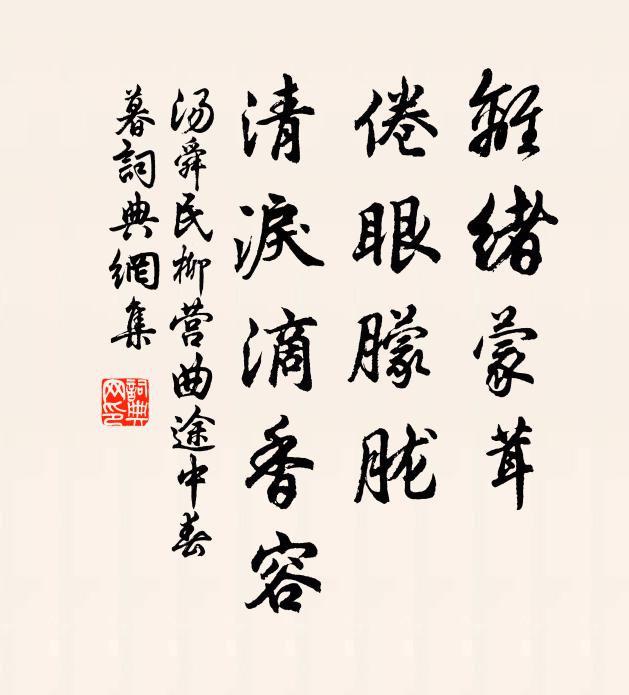 離緒蒙茸
倦眼朦朧
清淚滴香容
汤舜民柳营曲途中春
暮詞典網集
詞典網印